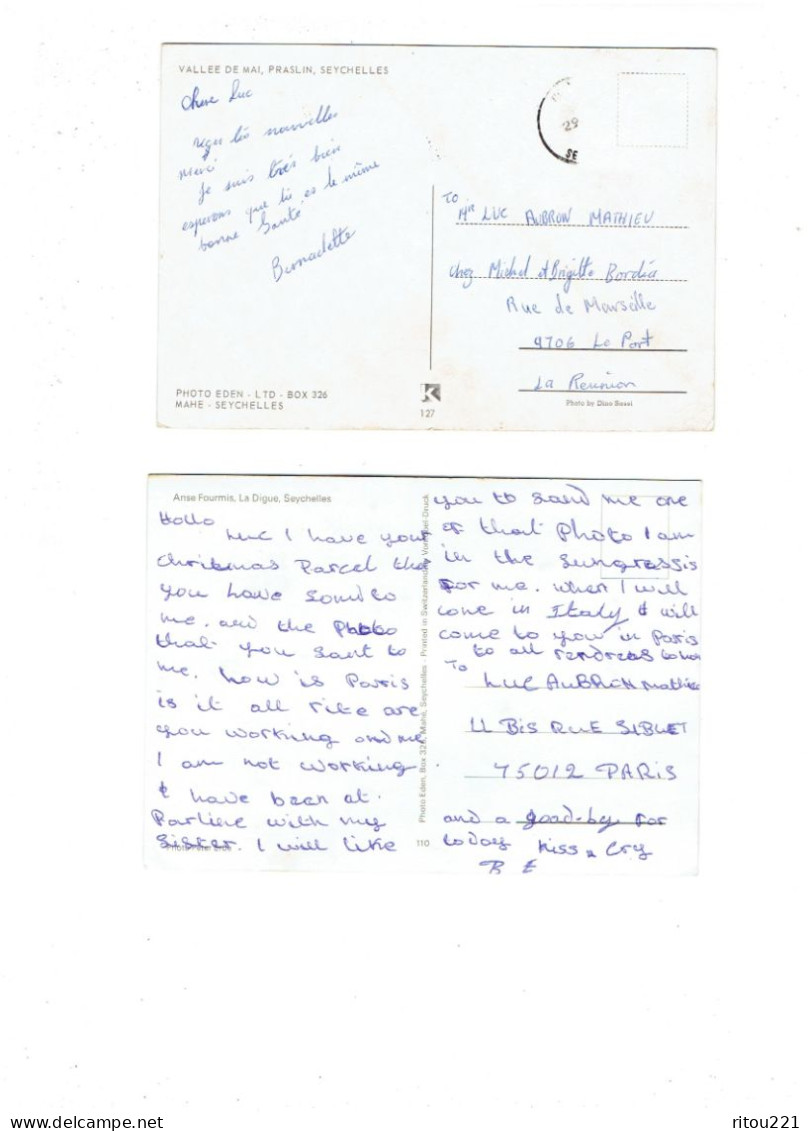 VALLEE DE MAI, PRASLIN, SEYCHELLES
Chere Luc
reçu tes nouvelles
merci
Je suis très bien
esperons que tu es le même
bonne Santé
Bernadette
PHOTO EDEN - LTD - BOX 326
MAHE - SEYCHELLES
K
127
29
SE
TO
Mr LUC AUBRON MATHIEU
Chez Michel et Brigitte
Rue de Marseille
9706 Le Port
La Reunion
Photo by Dino Sassi
Anse Fourmis, La Digue, Seychelles
Hello
Luc I have your
christmas Parcel tha
you have send to
me. and the Photo
that you sant to
me. how is Paris
is it all rite are
you working and me
I am not working
I have been at
with my
Sister. I will like
110
Photo Eden, Box 326, Mahé, Seychelles - Printed in Switzerland
you to sand me one
of that Photo I am
in the
for me. when I will
come in Italy I will
come to you in Paris
to all
To
LUC AUBRON Mathie
11 Bis RUE SIBUET
75012 PARIS
and a good-by for
today kiss & Cry
B E
ritou221